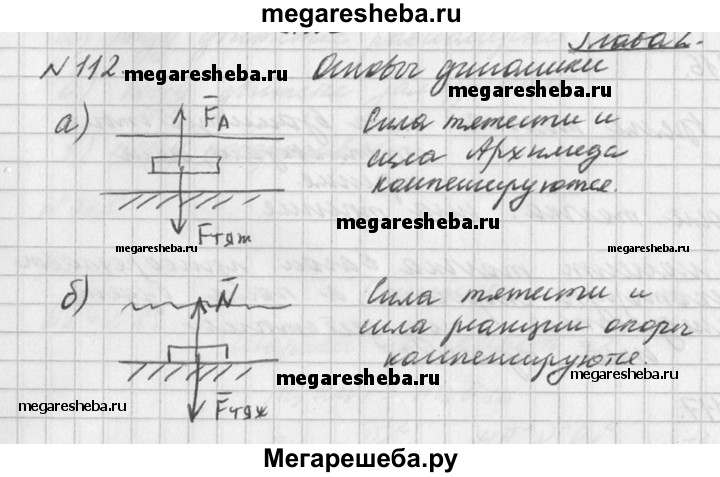 megaresheba.ru
Глава 2.
N 112. Основы динамики
megaresheba.ru
megaresheba.ru
а) F_A Сила тяжести и
сила Архимеда
компенсируются.
megaresheba.ru
Fтяж
megaresheba.ru
megaresheba.ru
б) N Сила тяжести и
сила реакции опоры
компенсируются.
megaresheba.ru
megaresheba.ru
megaresheba.ru
Fтяж
Мегарешеба.ру